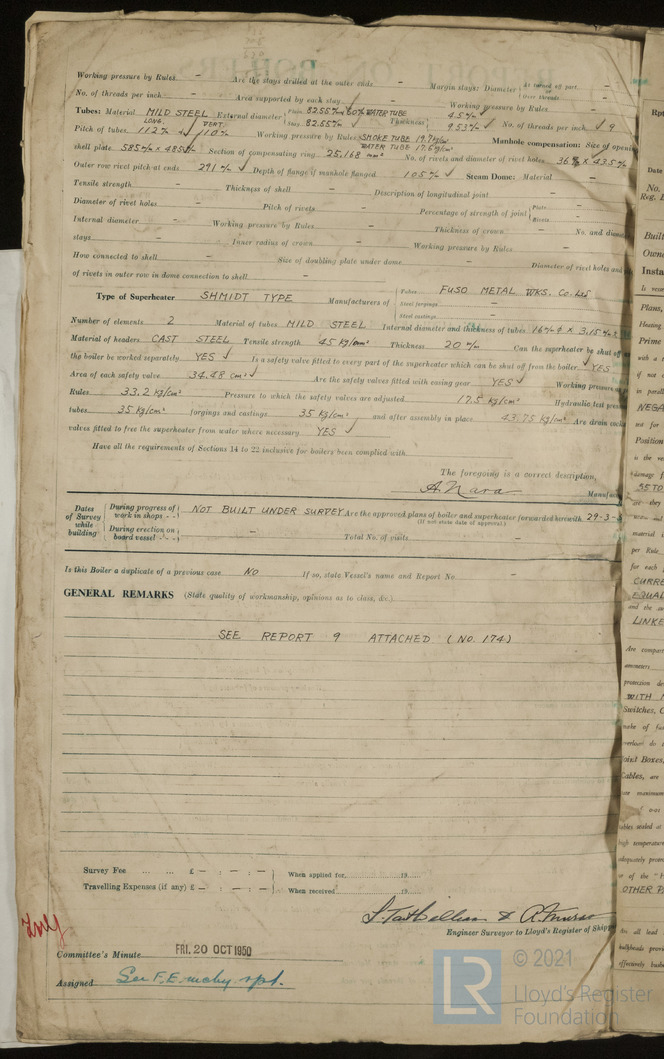 Working pressure by Rules - Are the stays drilled at the outer ends - Margin stays: Diameter { At turned off part. - or Over threads -
No. of threads per inch - Area supported by each stay - Working pressure by Rules -
Tubes: Material MILD STEEL External diameter { Plain 82.55 m/m 60 m/m WATER TUBE Stay 82.55 m/m Thickness { 4.5 m/m 9.53 m/m No. of threads per inch 9
Pitch of tubes LONG. 112 m/m VERT. 110 m/m Working pressure by Rules SMOKE TUBE 19.7 kg/cm² WATER TUBE 17.6 kg/cm² Manhole compensation: Size of openi
shell plate 585 m/m x 485 m/m Section of compensating ring 25,168 mm² No. of rivets and diameter of rivet holes 36 x 43.5 m/m
Outer row rivet pitch at ends 291 m/m Depth of flange if manhole flanged 105 m/m Steam Dome: Material -
Tensile strength - Thickness of shell - Description of longitudinal joint -
Diameter of rivet holes - Pitch of rivets - Percentage of strength of joint { Plate - Rivets -
Internal diameter - Working pressure by Rules - Thickness of crown - No. and diame
stays - Inner radius of crown - Working pressure by Rules -
How connected to shell - Size of doubling plate under dome - Diameter of rivet holes and
of rivets in outer row in dome connection to shell -
Type of Superheater SHMIDT TYPE Manufacturers of { Tubes FUSO METAL WKS. Co. Ltd Steel forgings - Steel castings -
Number of elements 2 Material of tubes MILD STEEL Internal diameter and thickness of tubes 16 m/m ɸ x 3.15 m/m
Material of headers CAST STEEL Tensile strength 45 kg/mm² Thickness 20 m/m Can the superheater be shut off
the boiler be worked separately YES Is a safety valve fitted to every part of the superheater which can be shut off from the boiler YES
Area of each safety valve 34.48 cm² Are the safety valves fitted with easing gear YES Working pressure
Rules 33.2 kg/cm² Pressure to which the safety valves are adjusted 17.5 kg/cm² Hydraulic test press
tubes 35 kg/cm² forgings and castings 35 kg/cm² and after assembly in place 43.75 kg/cm² Are drain cock
valves fitted to free the superheater from water where necessary YES
Have all the requirements of Sections 14 to 22 inclusive for boilers been complied with
The foregoing is a correct description,
A. Nara Manufac
Dates of Survey while building { During progress of work in shops - - } NOT BUILT UNDER SURVEY Are the approved plans of boiler and superheater forwarded herewith 29-3-
(If not state date of approval.)
{ During erection on board vessel - - - } - Total No. of visits -
Is this Boiler a duplicate of a previous case NO If so, state Vessel's name and Report No. -
GENERAL REMARKS (State quality of workmanship, opinions as to class, &c.)
SEE REPORT 9 ATTACHED (NO. 174)
Survey Fee ... ... £ - : - : - } When applied for 19
Travelling Expenses (if any) £ - : - : - } When received 19
Engineer Surveyor to Lloyd's Register of Shipp
Committee's Minute FRI. 20 OCT 1950
Assigned See F.E. mchy. rpt.
LR © 2021
Lloyd's Register
Foundation
Rpt
Date
No.
Reg. B
Built
Owne
Insta
Plans,
Heating
Prime
with a
if not
in parall
NEGA
Position
is the ve
damage f
55 TO
are they
material i
per Rule
for each
CURRE
EQUAL
and the
LINKE
Are compart
ammeters
protection de
WITH
Switches, C
make of fus
overload do
oint Boxes,
Cables, are
or maximum
high temperature
adequately prote
of the "H
OTHER P
Are all lead
bulkheads provi
effectively bush